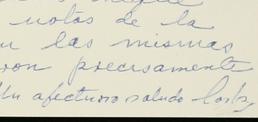 notas de la
las mismas
ron precisamente
Un afectuoso saludo